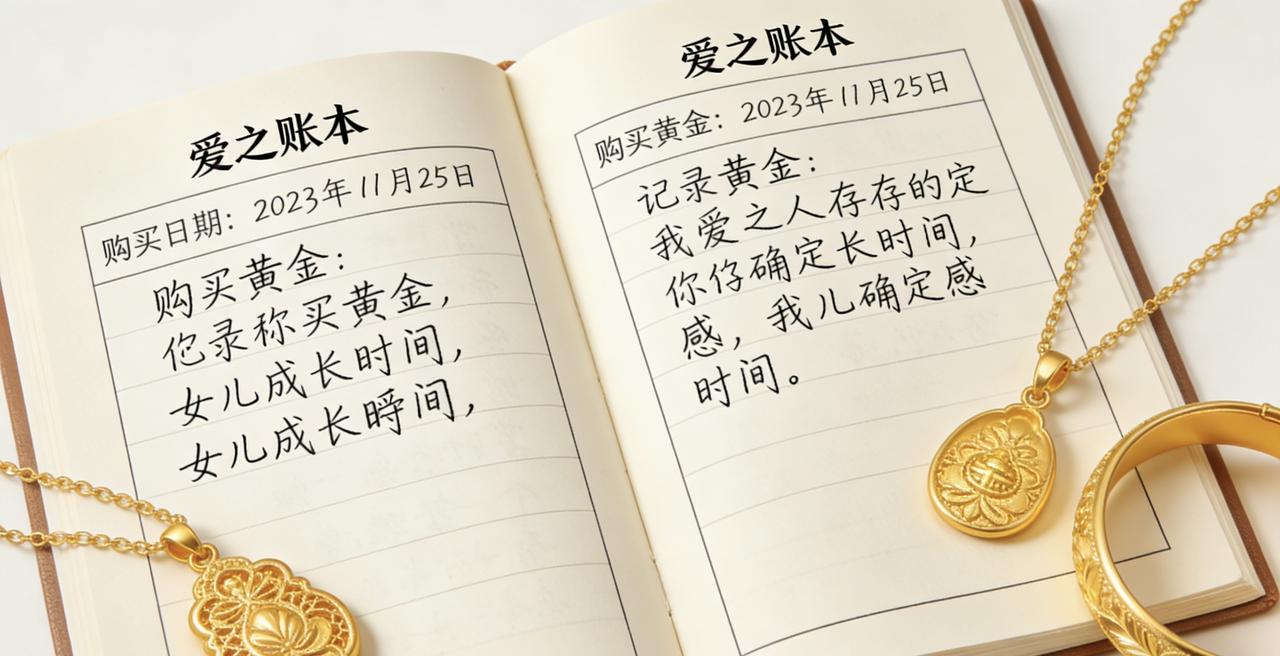 爱之账本
购买日期：2023年11月25日
购买黄金：
录称买黄金，
女儿成长时间，
女儿成长瞬间，
爱之账本
购买黄金：2023年11月25日
记录黄金：
我爱之人存存的定
你仔确定长时间，
感，我儿确定感
时间。